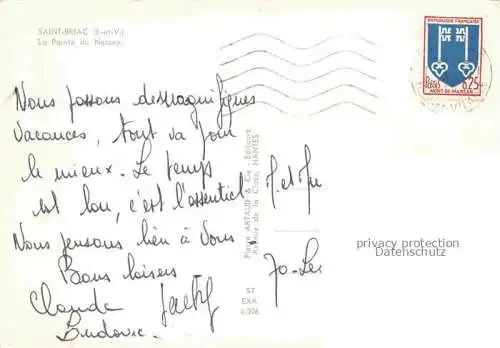 SAINT-BRIAC (I.-et-V.)
La Pointe du Nessay.
REPUBLIQUE FRANÇAISE
POSTES 0,25
MONT-DE-MARSAN
Nous passons des magnifiques
vacances, tout va pour
le mieux. Le temps
est bon, c'est l'essentiel
Nous pensons bien à vous
Bons baisers
Claude Jacky
Ludovic.
Pierre ARTAUD & Cie - Editeurs
Avenue de la Close, NANTES
M. et Me
ST
EXA
6.206
privacy protection
Datenschutz